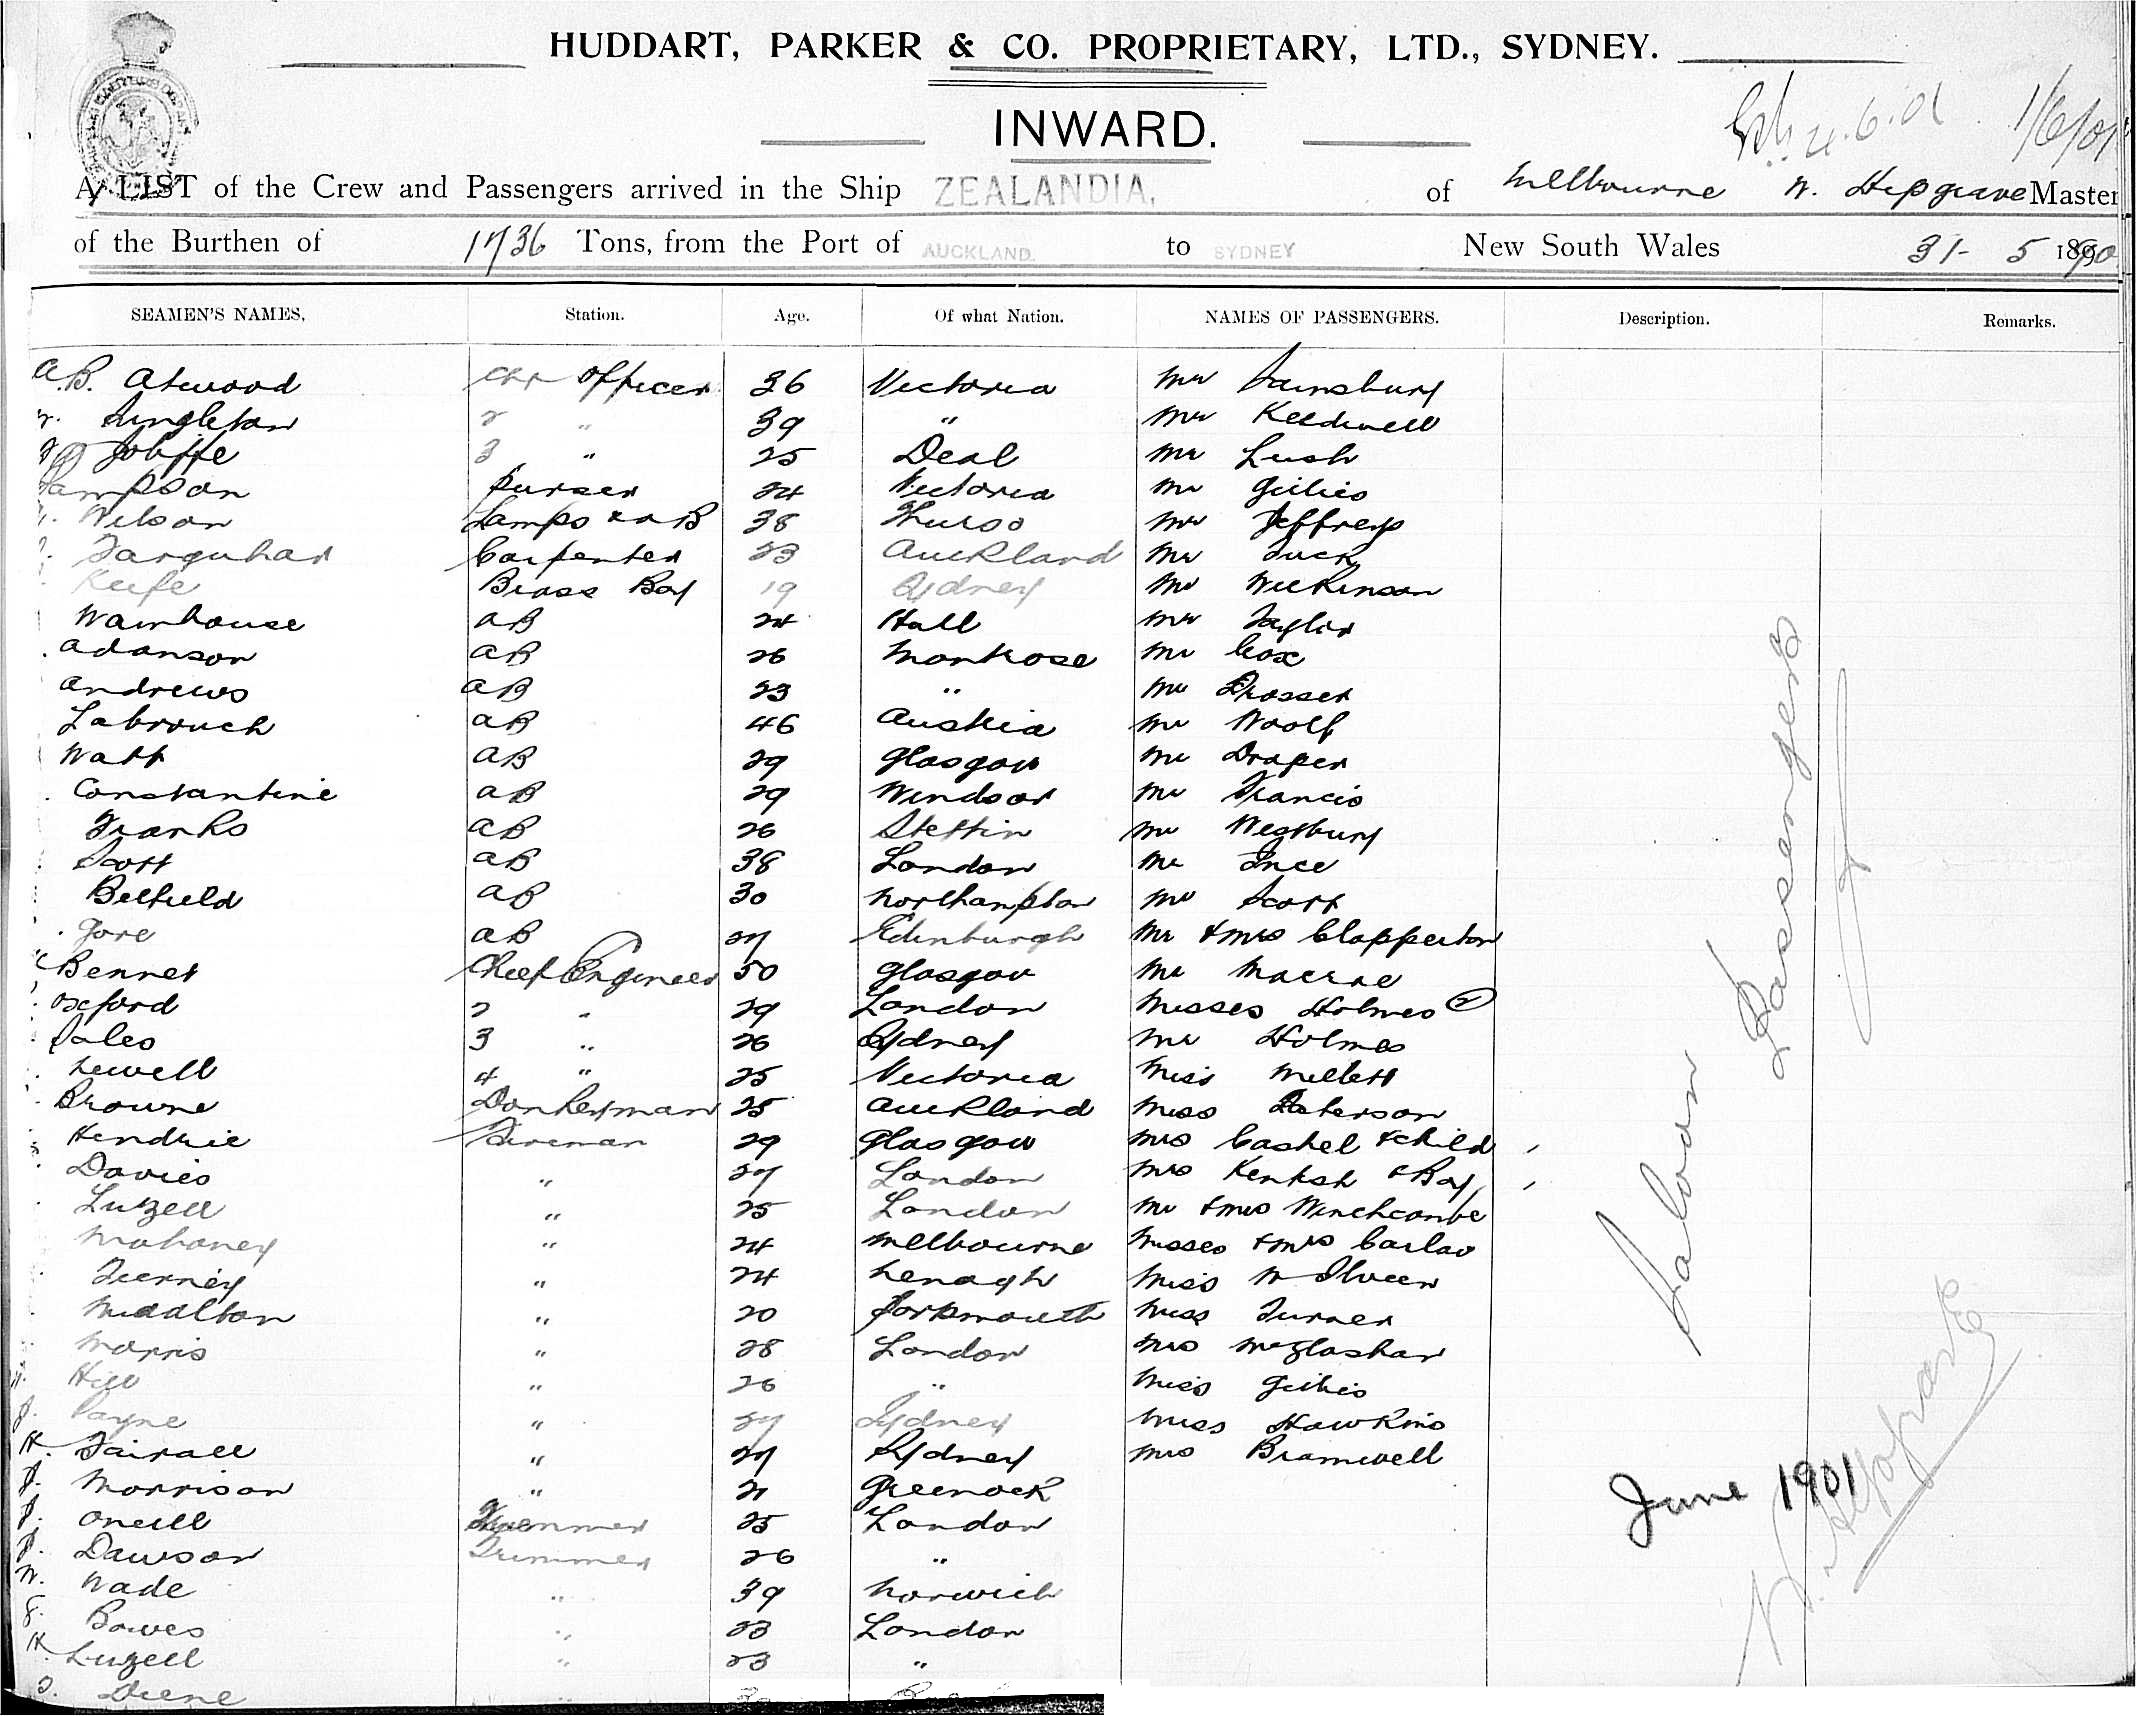 HUDDART, PARKER & CO. PROPRIETARY, LTD., SYDNEY.
INWARD.
4.6.01 1/6/01
A LIST of the Crew and Passengers arrived in the Ship ZEALANDIA, of Melbourne W. Hepgrave Master
of the Burthen of 1736 Tons, from the Port of AUCKLAND. to SYDNEY New South Wales 31- 5 1890
SEAMEN'S NAMES. Station. Age. Of what Nation. NAMES OF PASSENGERS. Description. Remarks.
A.B. Atwood Officer 36 Victoria Mr Sainsbury
Singleton 2 " 39 " Mr Keedwell
Joliffe 3 " 25 Deal Mr Lush
Sampson Purser 24 Victoria Mr Gillies
Wilson Lamps & AB 38 Thurso Mr Jeffreys
Farquhar Carpenter 23 Auckland Mr Tuck
Keefe Brass Boy 19 Sydney Mr Wilkinson
Wainhouse AB 24 Hull Mr Taylor
Adanson AB 26 Montrose Mr Cox
Andrews AB 23 " Mr Prosser
Labrouch AB 46 Austria Mr Woolf
Watt AB 29 Glasgow Mr Draper
Constantine AB 29 Windsor Mr Francis
Franks AB 26 Stettin Mr Westbury
Scott AB 38 London Mr Ince
Belfield AB 30 Northampton Mr Scott
Gore AB 27 Edinburgh Mr & Mrs Clapperton
Bennet Chief Engineer 50 Glasgow Mr Macrae
Oxford 2 " 29 London Misses Holmes (2)
Sales 3 " 26 Sydney Mr Holmes
Newell 4 " 25 Victoria Miss Millett
Browne Donkeyman 25 Auckland Miss Paterson
Hendrie Fireman 29 Glasgow Mrs Cashel & child
Davies " 27 London Mrs Kentish & Boy
Luzell " 25 London Mr & Mrs Winchcombe
Mahoney " 24 Melbourne Misses & Mrs
Tierney " 24 Nenagh Miss
Middleton " 20 Portsmouth Miss Turner
Morris " 28 London Mrs McGlashan
Hill " 26 " Miss Gillies
J. Payne " 27 Sydney Miss Hawkins
H. Fairall " 27 Sydney Mrs Bramwell
J. Morrison " 21 Greenock
J. Oneill Trimmer 25 London
J. Dawson Trimmer 26 "
W. Wade " 39 Norwich
Bowes " 23 London
H. Luzell " 23 "
Saloon Passengers
June 1901